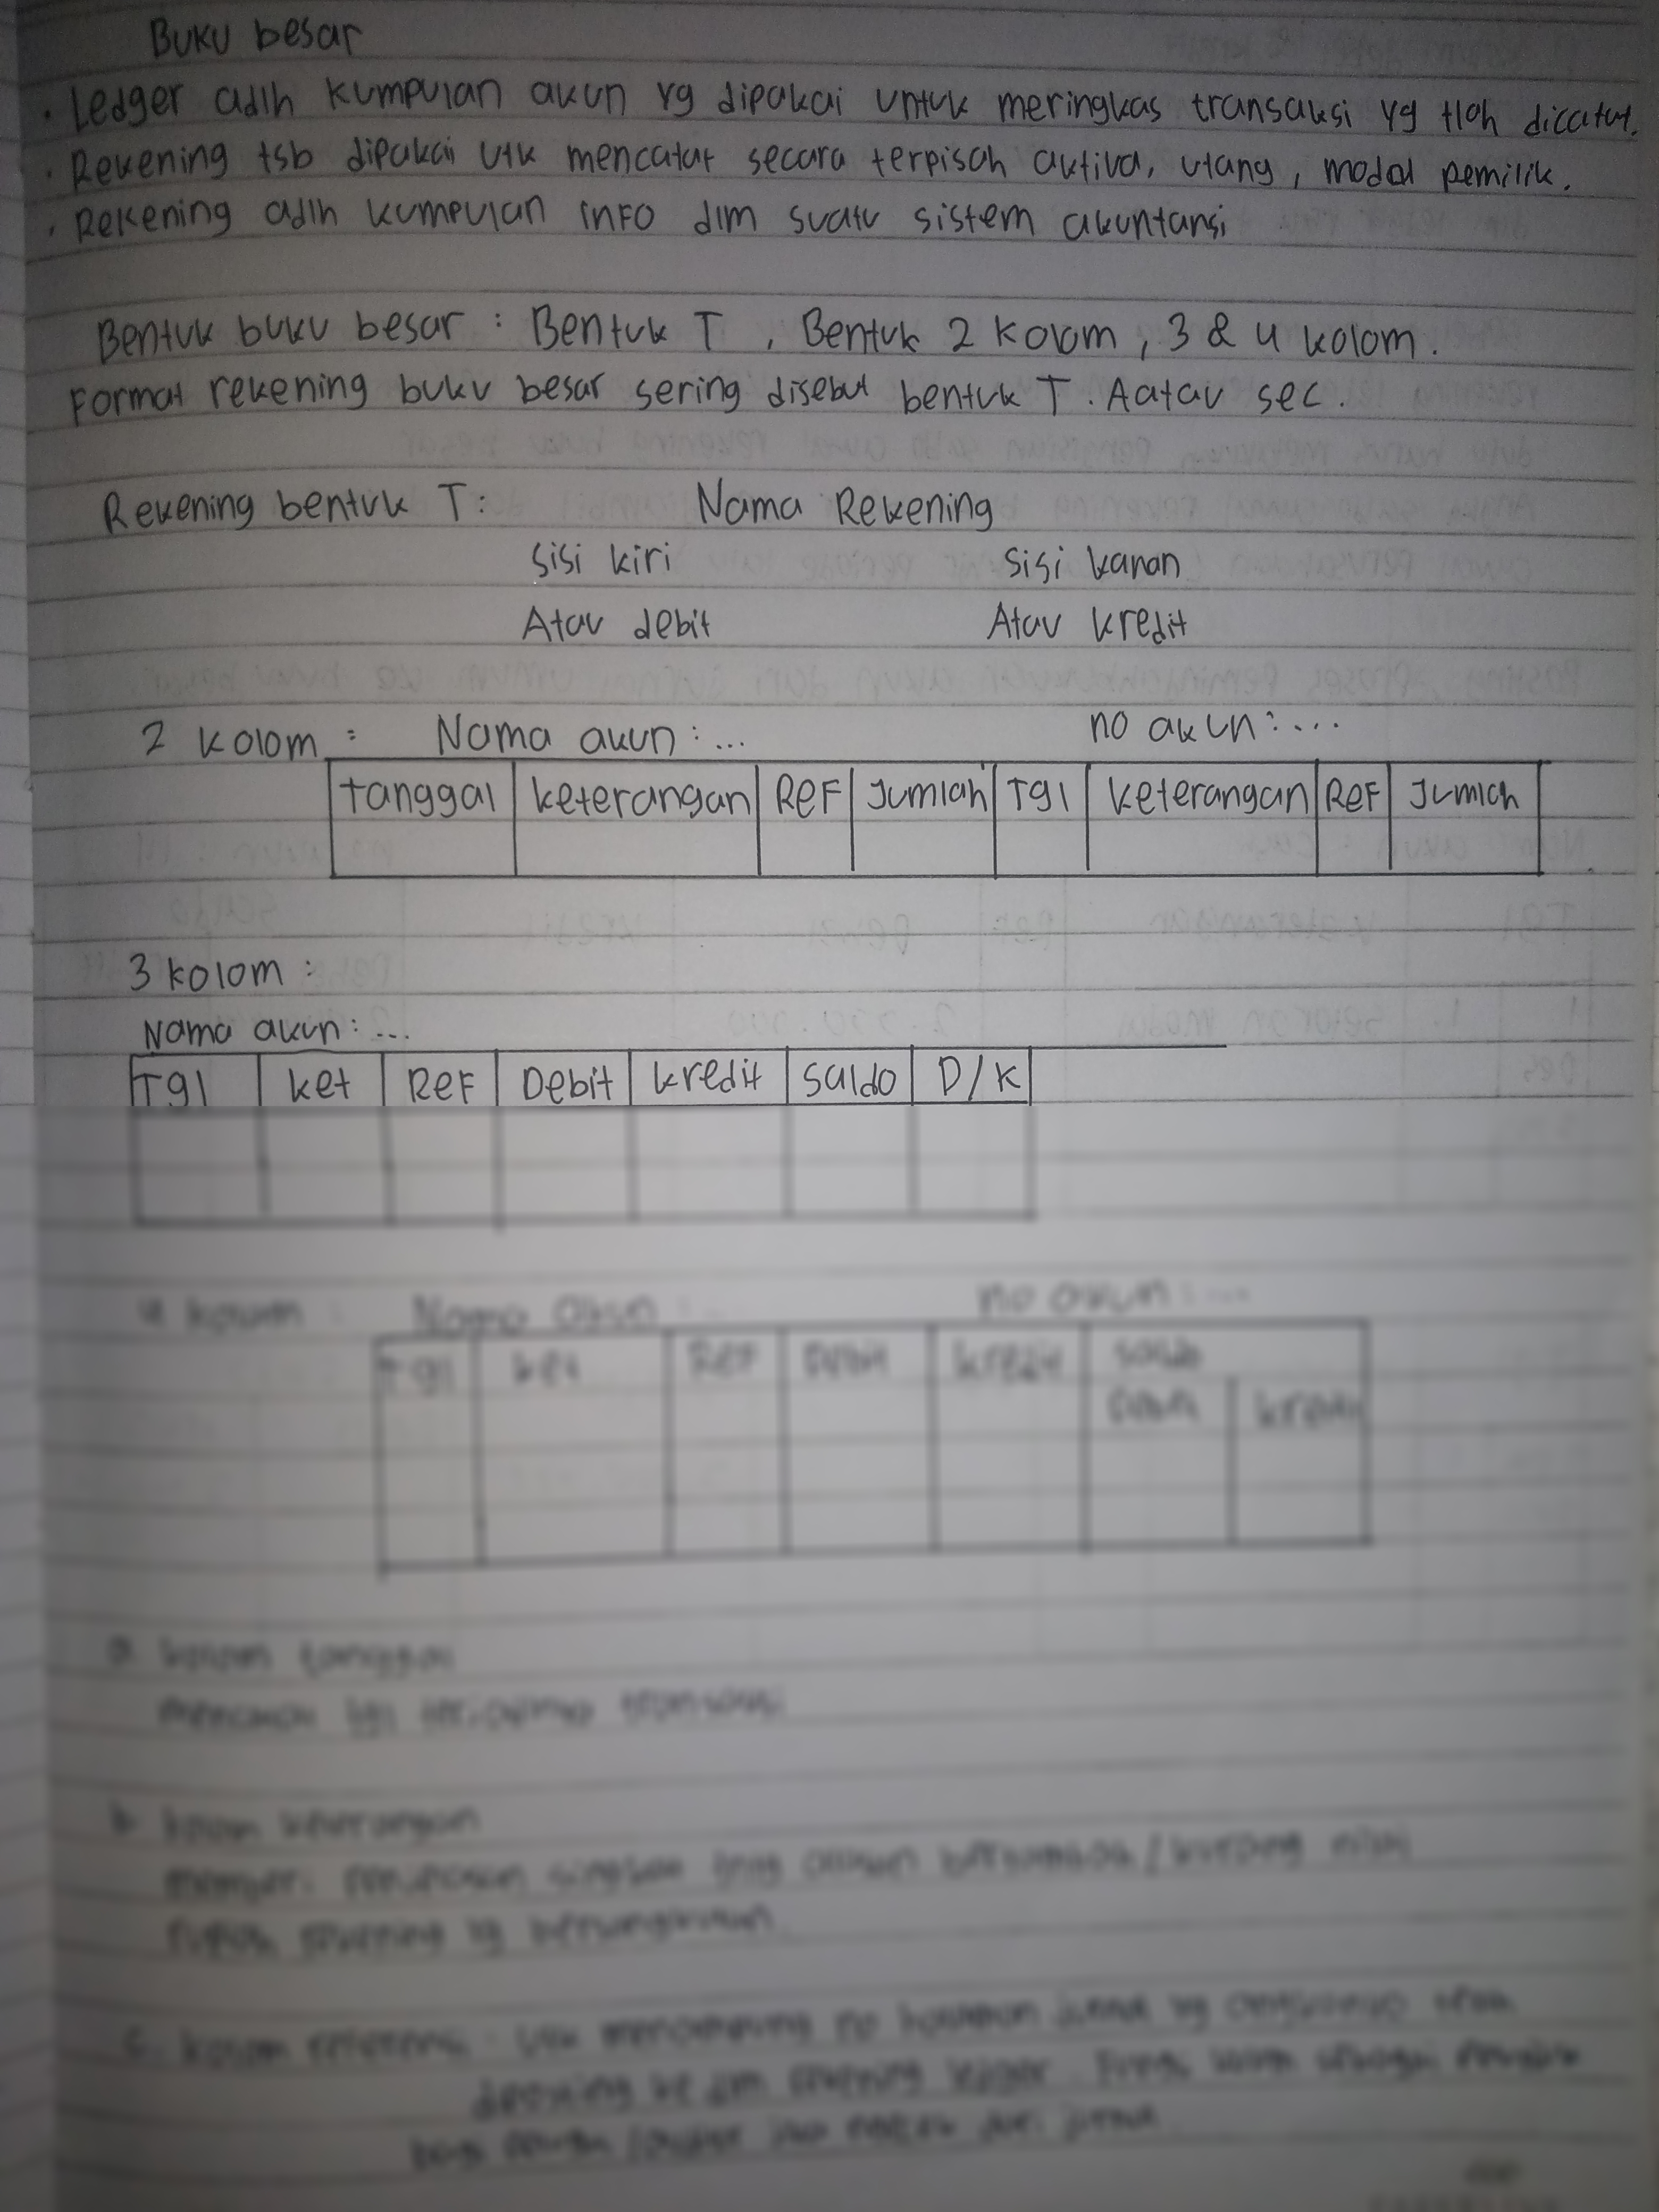 Buku besar
• Ledger adlh kumpulan akun yg dipakai untuk meringkas transaksi yg tlah dicatat.
• Rekening tsb dipakai utk mencatat secara terpisah aktiva, utang, modal pemilik.
• Rekening adlh kumpulan info dlm suatu sistem akuntansi
Bentuk buku besar : Bentuk T , Bentuk 2 kolom, 3 & 4 kolom.
Format rekening buku besar sering disebut bentuk T. Aatau sec.
Rekening bentuk T: Nama Rekening
Sisi kiri Sisi kanan
Atau debit Atau kredit
2 kolom : Nama akun : ... no akun : ...
tanggal keterangan Ref Jumlah Tgl keterangan Ref Jumlah
3 kolom :
Nama akun : ...
Tgl ket Ref Debit kredit saldo D/K
4 kolom : Nama akun : ... no akun : ...
Tgl ket Ref Debit kredit saldo
Debit kredit
a. kolom tanggal
mencatat tgl terjadinya transaksi
b. kolom keterangan
penjelasan singkat bertambah/kurang nilai
rekening yg
c. kolom referensi no halaman jurnal yg
rekening ledger
dari jurnal